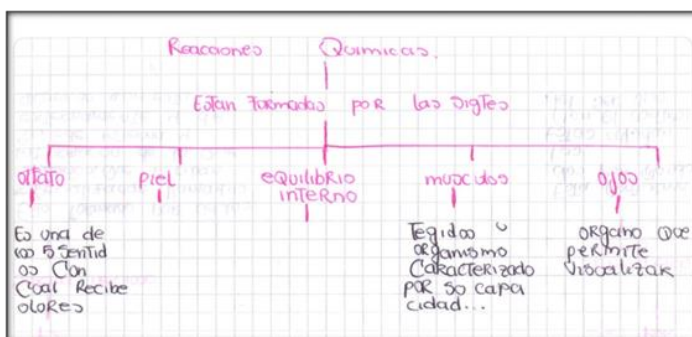 Reacciones Quimicas.
Estan Formadas por las sigtes
olfato
piel
equilibrio
interno
musculos
ojos
Es una de
los 5 sentid
os con
cual Recibe
olores
Tegidos u
organismo
caracterizado
por su capa
cidad...
organo que
permite
visualizar